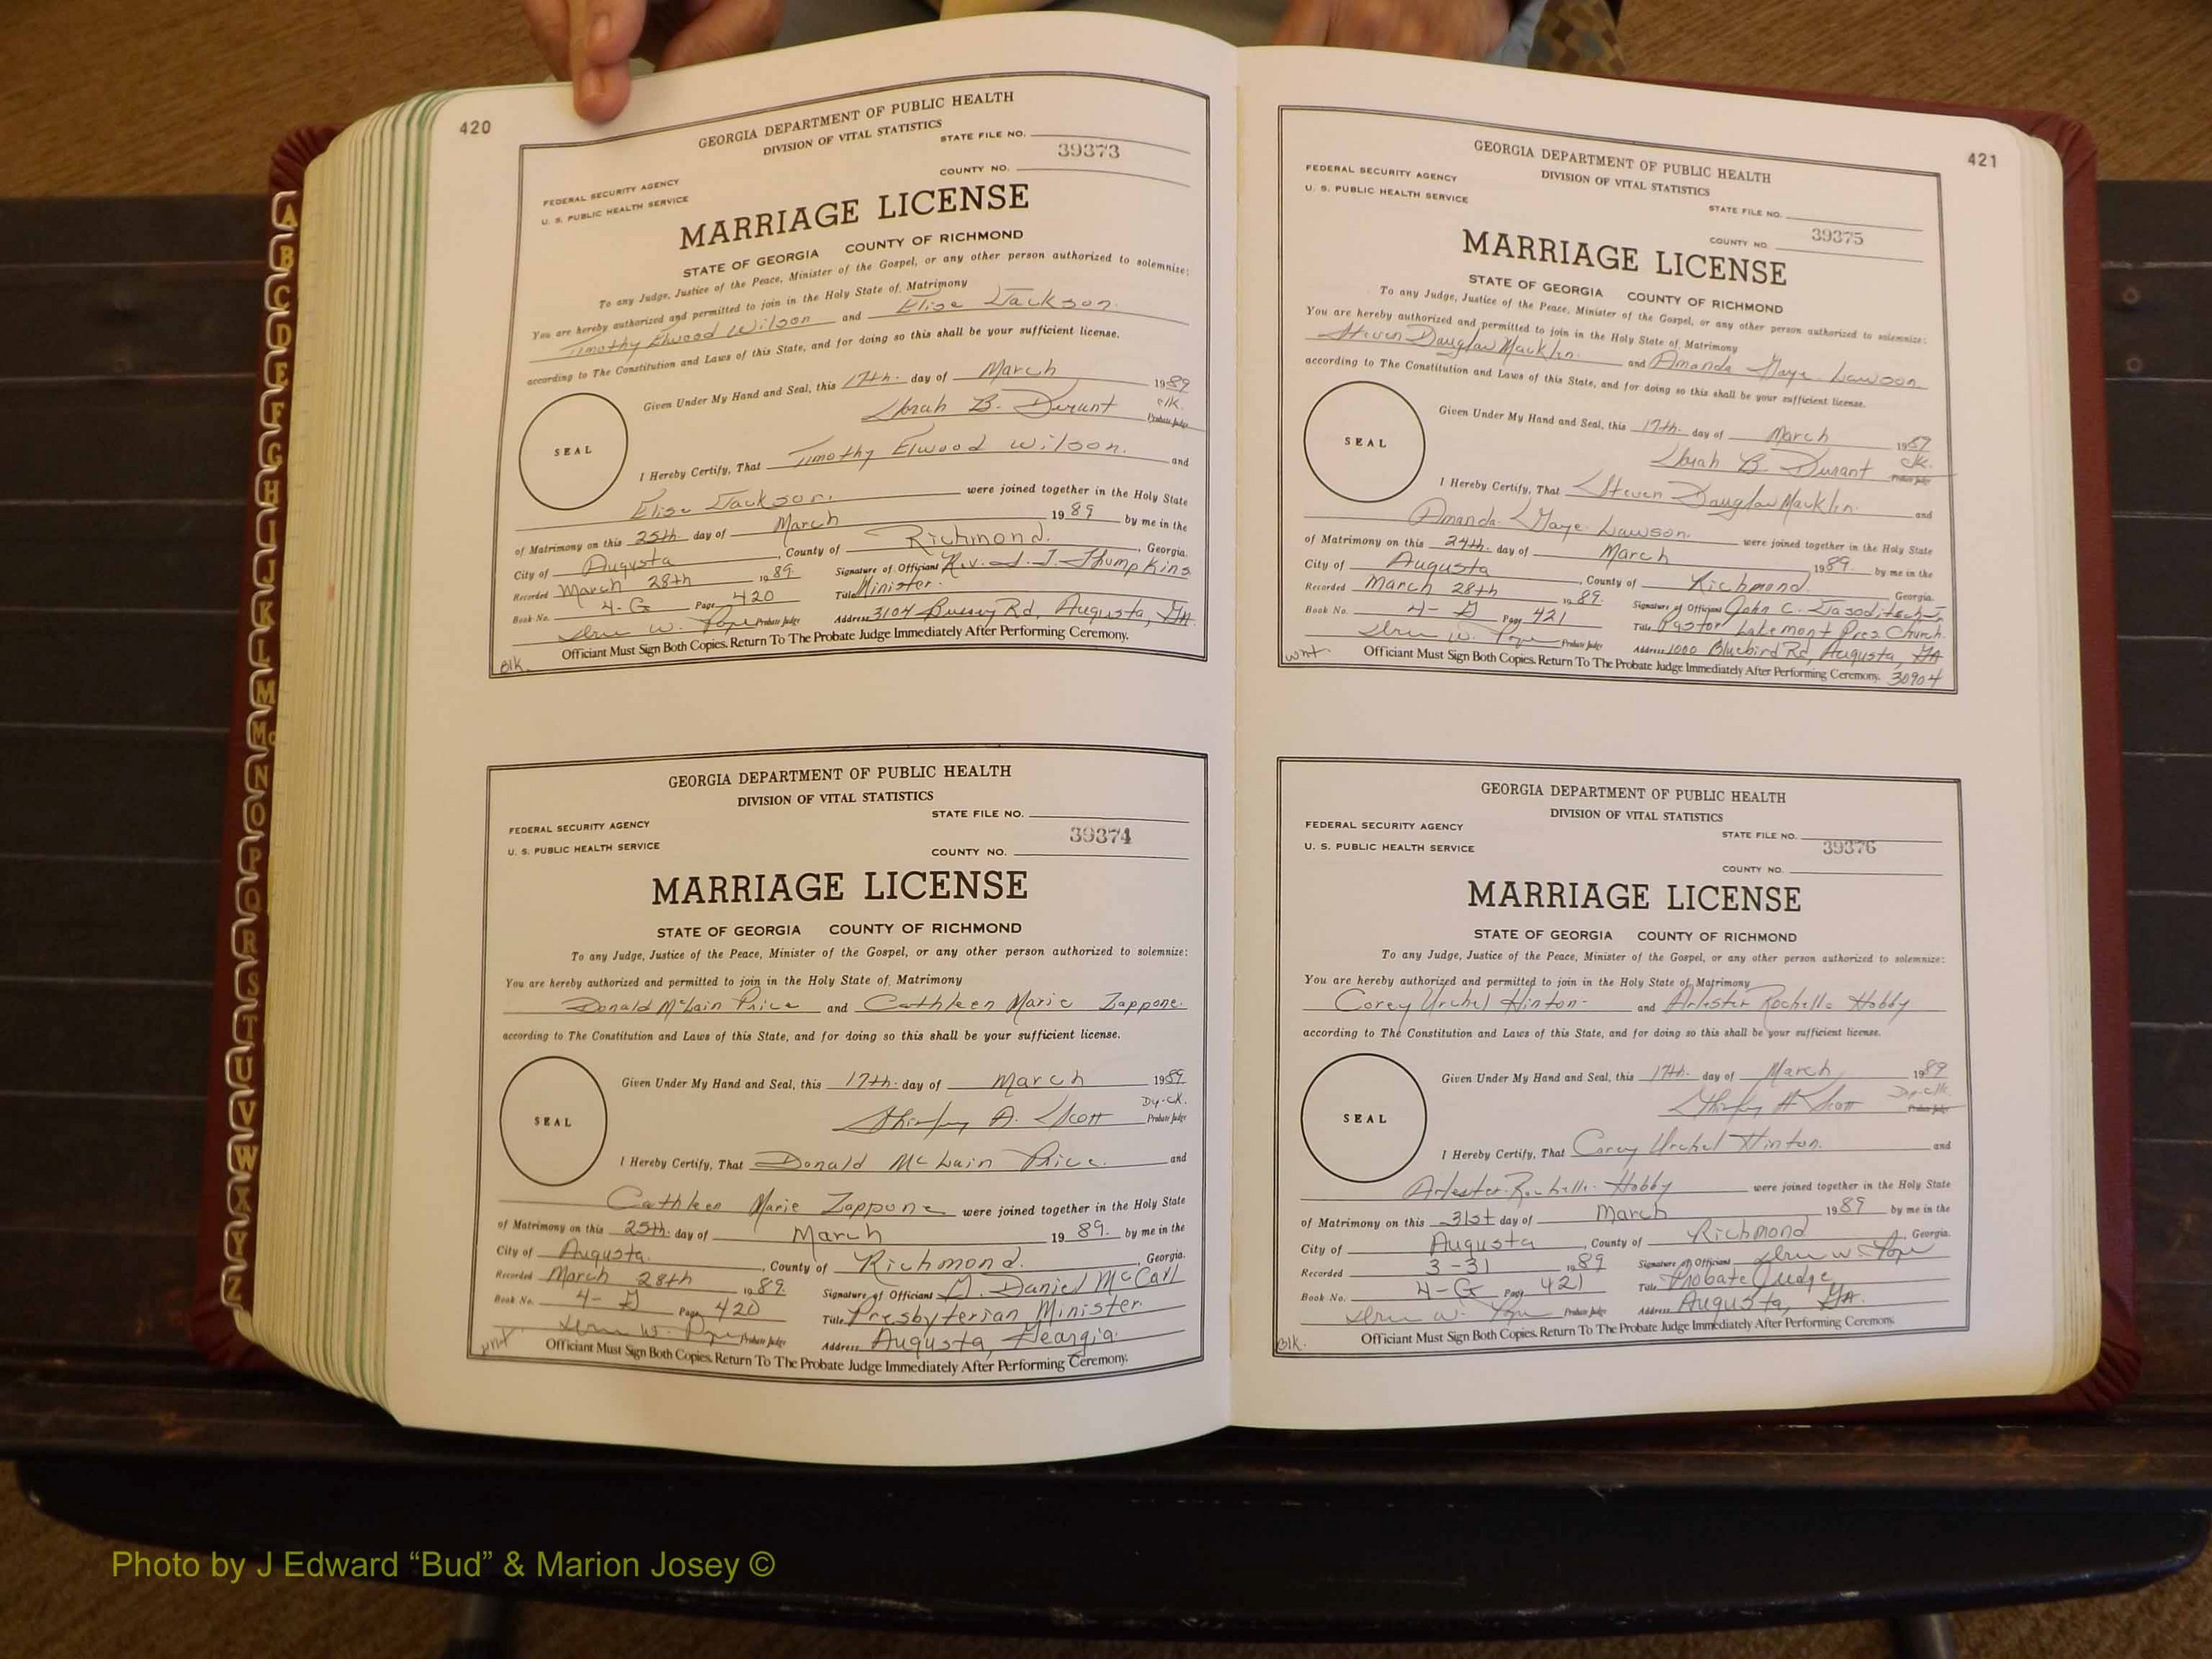 420
GEORGIA DEPARTMENT OF PUBLIC HEALTH
DIVISION OF VITAL STATISTICS
STATE FILE NO.
39373
COUNTY NO.
FEDERAL SECURITY AGENCY
U. S. PUBLIC HEALTH SERVICE
MARRIAGE LICENSE
STATE OF GEORGIA COUNTY OF RICHMOND
To any Judge, Justice of the Peace, Minister of the Gospel, or any other person authorized to solemnize:
You are hereby authorized and permitted to join in the Holy State of Matrimony
Timothy Elwood Wilson and Elise Jackson.
according to The Constitution and Laws of this State, and for doing so this shall be your sufficient license.
Given Under My Hand and Seal, this 17th. day of March 1989
B. Durant clk.
Probate Judge
SEAL
I Hereby Certify, That Timothy Elwood Wilson. and
Elise Jackson. were joined together in the Holy State
of Matrimony on this 25th. day of March 1989 by me in the
City of Augusta, County of Richmond., Georgia.
Recorded March 28th 1989. Signature of Officiant Rev. J. J. Thumpkins
Book No. 4-G Page 420 Title Minister.
W. Pope Probate Judge Address 3104 Rd, Augusta, GA.
Officiant Must Sign Both Copies. Return To The Probate Judge Immediately After Performing Ceremony.
Blk.
GEORGIA DEPARTMENT OF PUBLIC HEALTH
DIVISION OF VITAL STATISTICS
STATE FILE NO.
39374
COUNTY NO.
FEDERAL SECURITY AGENCY
U. S. PUBLIC HEALTH SERVICE
MARRIAGE LICENSE
STATE OF GEORGIA COUNTY OF RICHMOND
To any Judge, Justice of the Peace, Minister of the Gospel, or any other person authorized to solemnize:
You are hereby authorized and permitted to join in the Holy State of Matrimony
Donald McLain Price and Cathleen Marie Zappone.
according to The Constitution and Laws of this State, and for doing so this shall be your sufficient license.
Given Under My Hand and Seal, this 17th. day of March 1989
Shirley A. Scott Dy-ck.
Probate Judge
SEAL
I Hereby Certify, That Donald McLain Price. and
Cathleen Marie Zappone were joined together in the Holy State
of Matrimony on this 25th. day of March 1989. by me in the
City of Augusta., County of Richmond., Georgia.
Recorded March 28th 1989. Signature of Officiant G. Daniel McCall
Book No. 4-G Page 420 Title Presbyterian Minister.
W. Pope Probate Judge Address Augusta, Georgia.
Officiant Must Sign Both Copies. Return To The Probate Judge Immediately After Performing Ceremony.
wht
421
GEORGIA DEPARTMENT OF PUBLIC HEALTH
DIVISION OF VITAL STATISTICS
STATE FILE NO.
39375
COUNTY NO.
FEDERAL SECURITY AGENCY
U. S. PUBLIC HEALTH SERVICE
MARRIAGE LICENSE
STATE OF GEORGIA COUNTY OF RICHMOND
To any Judge, Justice of the Peace, Minister of the Gospel, or any other person authorized to solemnize:
You are hereby authorized and permitted to join in the Holy State of Matrimony
Steven Douglas Macklin. and Amanda Gaye Lawson
according to The Constitution and Laws of this State, and for doing so this shall be your sufficient license.
Given Under My Hand and Seal, this 17th. day of March 1989
B. Durant clk.
Probate Judge
SEAL
I Hereby Certify, That Steven Douglas Macklin. and
Amanda Gaye Lawson. were joined together in the Holy State
of Matrimony on this 24th. day of March 1989. by me in the
City of Augusta, County of Richmond. Georgia.
Recorded March 28th 1989. Signature of Officiant John C.
Book No. 4-G Page 421 Title Pastor Lakemont Pres Church.
W. Pope Probate Judge Address 1000 Bluebird Rd, Augusta, GA
Officiant Must Sign Both Copies. Return To The Probate Judge Immediately After Performing Ceremony. 30904
wht
GEORGIA DEPARTMENT OF PUBLIC HEALTH
DIVISION OF VITAL STATISTICS
STATE FILE NO.
39376
COUNTY NO.
FEDERAL SECURITY AGENCY
U. S. PUBLIC HEALTH SERVICE
MARRIAGE LICENSE
STATE OF GEORGIA COUNTY OF RICHMOND
To any Judge, Justice of the Peace, Minister of the Gospel, or any other person authorized to solemnize:
You are hereby authorized and permitted to join in the Holy State of Matrimony
Corey Urchel Hinton and Arlester Rochelle Hobby
according to The Constitution and Laws of this State, and for doing so this shall be your sufficient license.
Given Under My Hand and Seal, this 17th. day of March 1989
Shirley A. Scott Dy-clk.
Probate Judge
SEAL
I Hereby Certify, That Corey Urchel Hinton. and
Arlester Rochelle Hobby were joined together in the Holy State
of Matrimony on this 31st day of March 1989 by me in the
City of Augusta, County of Richmond, Georgia.
Recorded 3-31 1989 Signature of Officiant W. Pope
Book No. 4-G Page 421 Title Probate Judge
W. Pope Probate Judge Address Augusta, GA.
Officiant Must Sign Both Copies. Return To The Probate Judge Immediately After Performing Ceremony.
Blk.
A
B
C
D
E
F
G
H
I
J
K
L
M
Mc
N
O
P
Q
R
S
T
U
V
W
X
Y
Z
Photo by J Edward “Bud” & Marion Josey ©